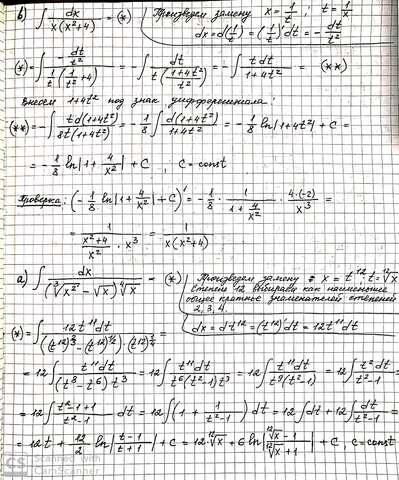 б) ∫ dx / x(x²+4) = (*)
Произведем замену x = 1/t ; t = 1/x
dx = d(1/t) = (1/t)' dt = - dt/t²
(*) = ∫ (-dt/t²) / (1/t (1/t² + 4)) = - ∫ dt / (t ((1+4t²)/t²)) = - ∫ t dt / (1+4t²) = (**)
Внесем 1+4t² под знак дифференциала:
(**) = - ∫ t d(1+4t²) / 8t(1+4t²) = - 1/8 ∫ d(1+4t²) / (1+4t²) = - 1/8 ln|1+4t²| + C =
= - 1/8 ln|1 + 4/x²| + C , C = const
Проверка: (- 1/8 ln|1 + 4/x²| + C)' = - 1/8 · 1/(1 + 4/x²) · 4·(-2)/x³ =
= 1 / ((x²+4)/x² · x³) = 1 / x(x²+4)
а) ∫ dx / (∛x² - √x) ∜x = (*)
Произведем замену: x = t¹² , t = ¹²√x
Степень 12 выбираем как наименьшее
общее кратное знаменателей степеней
2, 3, 4.
dx = dt¹² = (t¹²)' dt = 12t¹¹ dt
(*) = ∫ 12t¹¹ dt / ((t¹²)^(2/3) - (t¹²)^(1/2)) · (t¹²)^(1/4) =
= 12 ∫ t¹¹ dt / (t⁸ - t⁶) t³ = 12 ∫ t¹¹ dt / t⁶(t²-1) t³ = 12 ∫ t¹¹ dt / t⁹(t²-1) = 12 ∫ t² dt / (t²-1) =
= 12 ∫ (t²-1+1)/(t²-1) dt = 12 ∫ (1 + 1/(t²-1)) dt = 12 ∫ dt + 12 ∫ dt/(t²-1) =
= 12t + 12/2 ln|(t-1)/(t+1)| + C = 12·¹²√x + 6 ln|(¹²√x - 1)/(¹²√x + 1)| + C, C = const
CS CamScanner